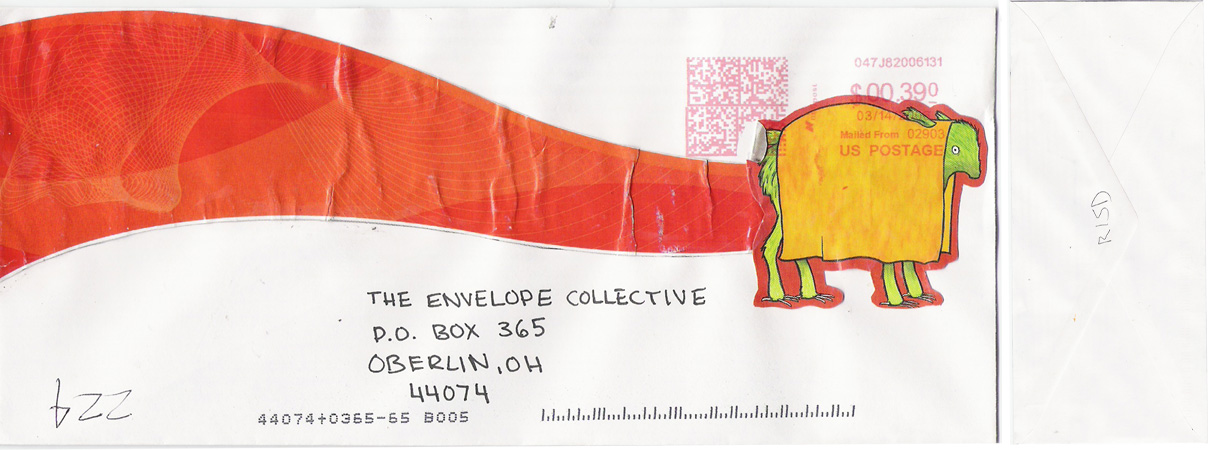 047J82006131
$00.390
03/14/
Mailed From 02903
US POSTAGE
THE ENVELOPE COLLECTIVE
P.O. BOX 365
OBERLIN, OH
44074
224
44074+0365-65 B005
RISD